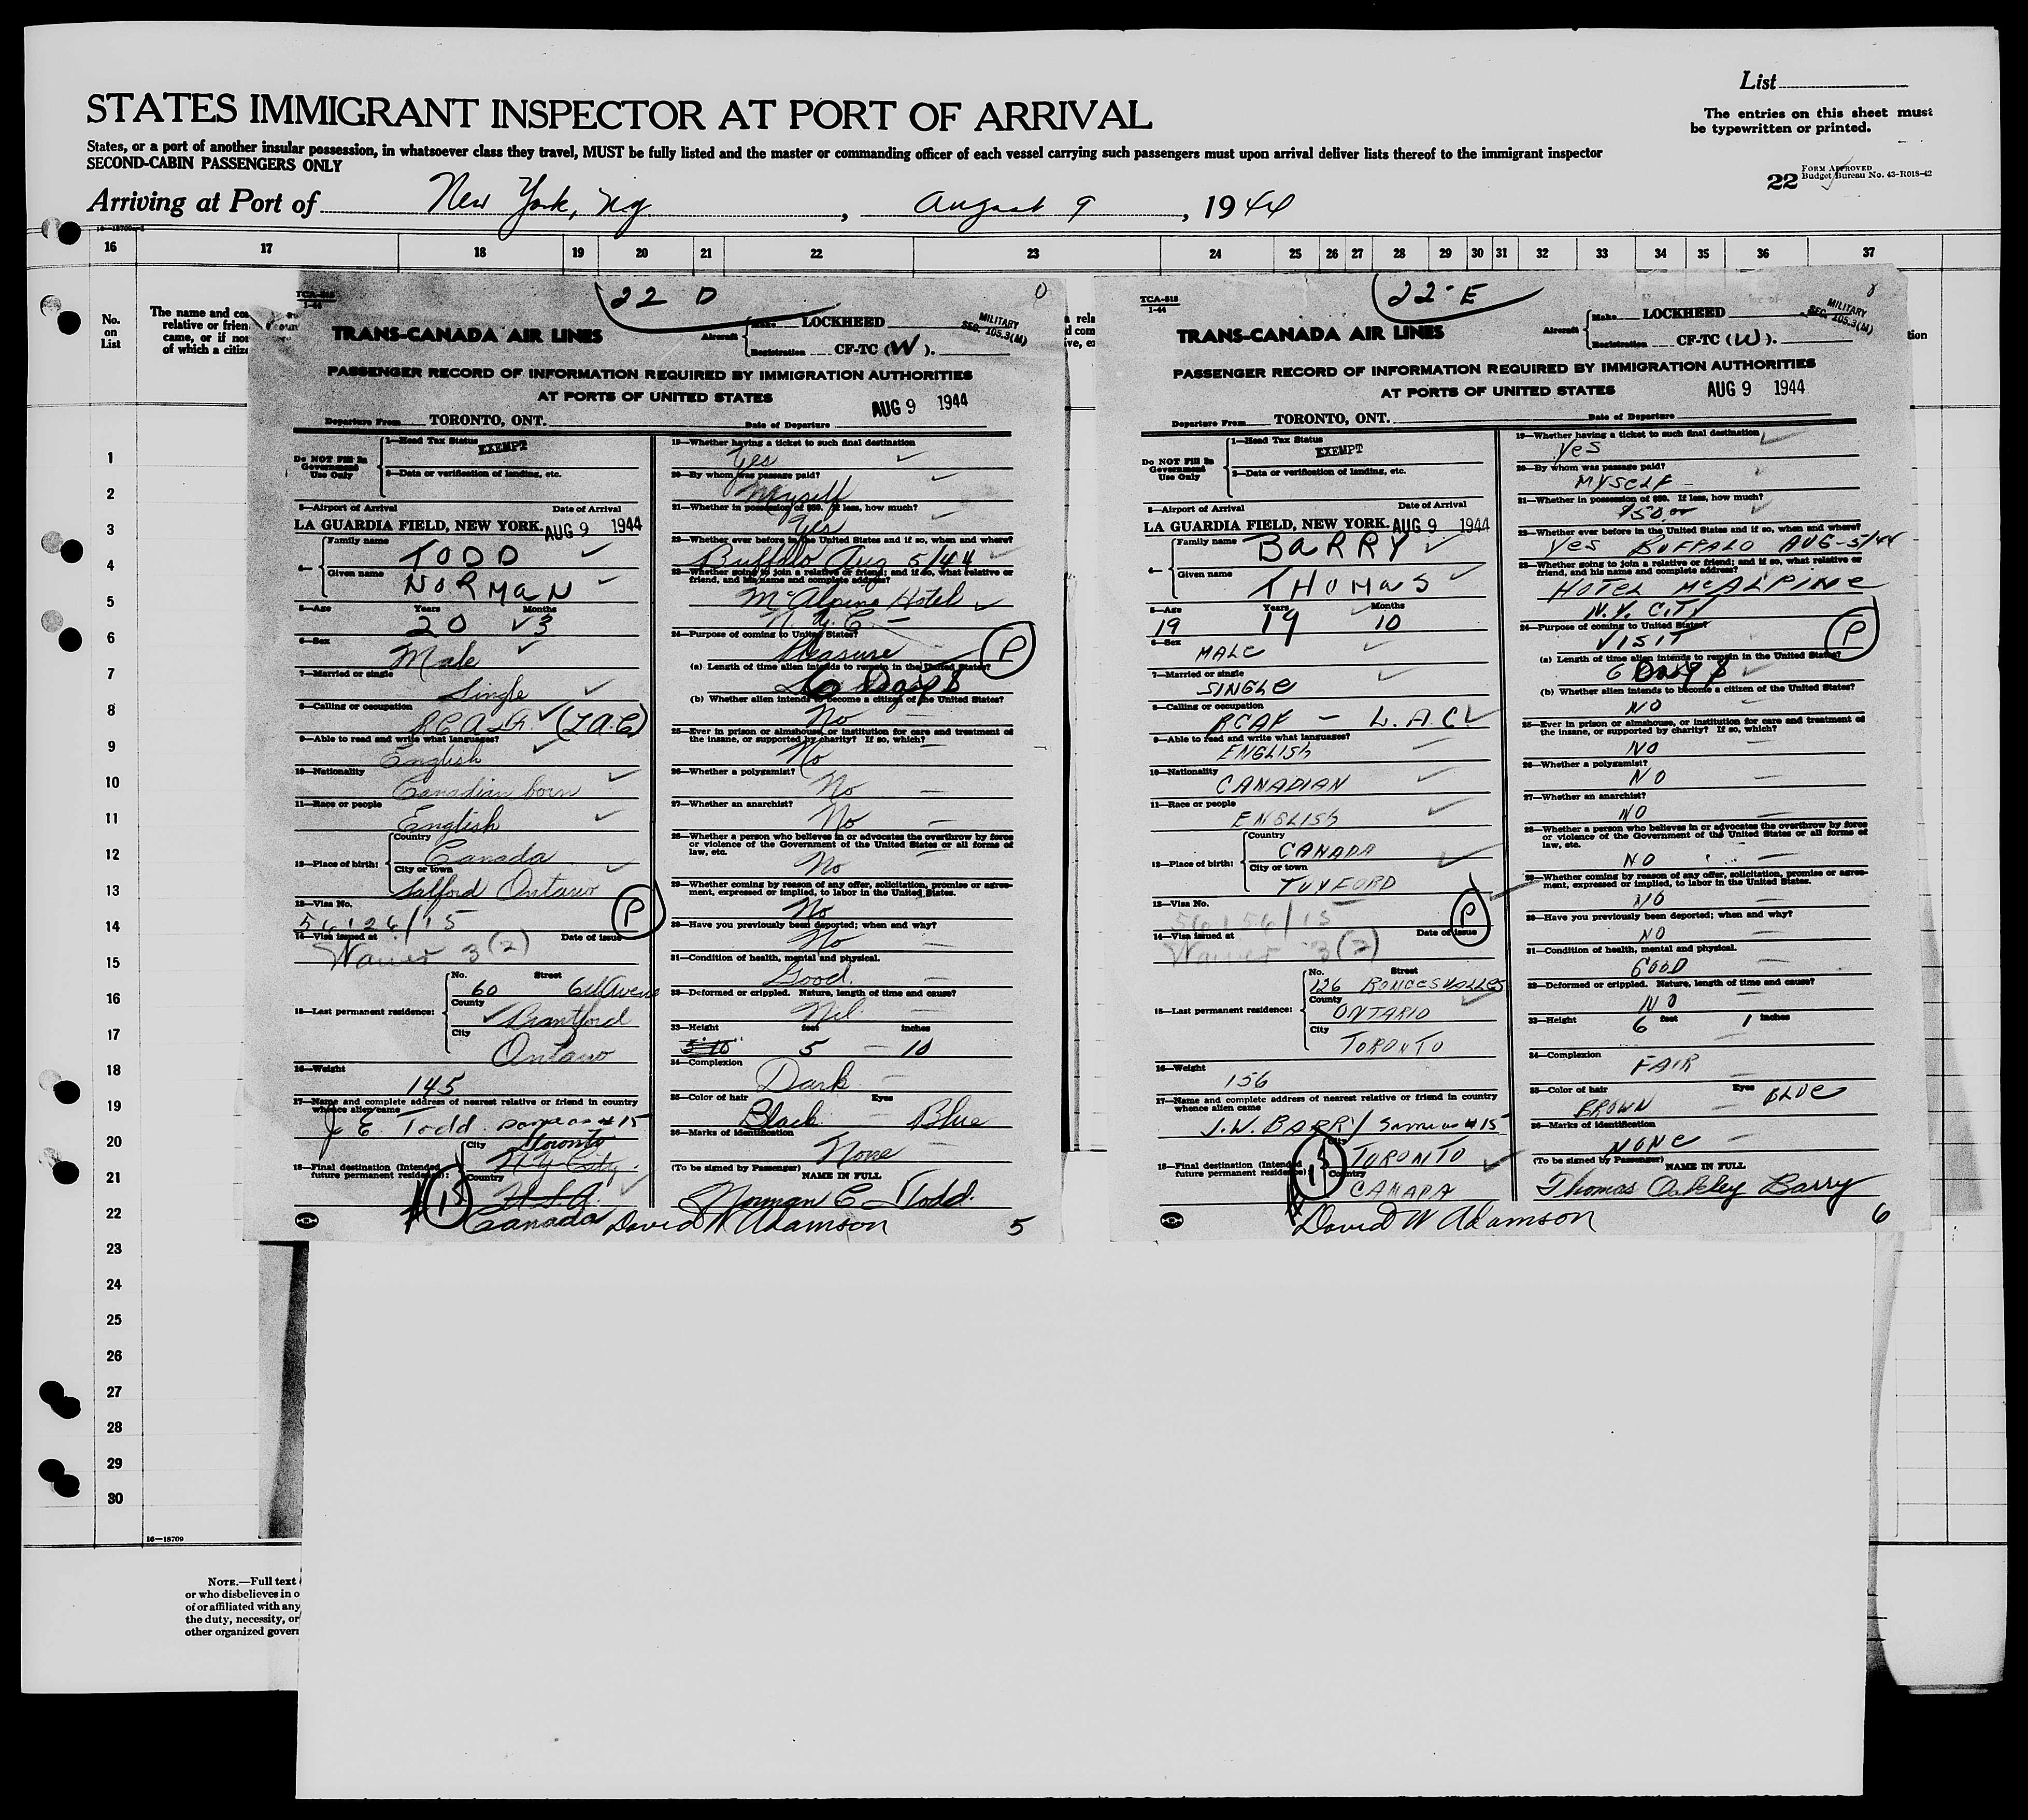 List
STATES IMMIGRANT INSPECTOR AT PORT OF ARRIVAL
The entries on this sheet must
be typewritten or printed.
States, or a port of another insular possession, in whatsoever class they travel, MUST be fully listed and the master or commanding officer of each vessel carrying such passengers must upon arrival deliver lists thereof to the immigrant inspector
SECOND-CABIN PASSENGERS ONLY
22 FORM APPROVED
Budget Bureau No. 43-R018-42
Arriving at Port of New York, Ny. , August 9 , 1944
16 17 18 19 20 21 22 23 24 25 26 27 28 29 30 31 32 33 34 35 36 37
No.
on
List
The name and
relative or frien
came, or if no
of which a citiz
1
2
3
4
5
6
7
8
9
10
11
12
13
14
15
16
17
18
19
20
21
22
23
24
25
26
27
28
29
30
16—18709
NOTE.—Full text
or who disbelieves in o
of or affiliated with any
the duty, necessity, or
other organized govern
TCA-518
1-44
22 D
TRANS-CANADA AIR LINES
Aircraft Make LOCKHEED
Registration CF-TC (W).
MILITARY
SEC. 105.3(M)
PASSENGER RECORD OF INFORMATION REQUIRED BY IMMIGRATION AUTHORITIES
AT PORTS OF UNITED STATES
AUG 9 1944
Departure From TORONTO, ONT. Date of Departure
Do NOT Fill In
Government
Use Only
1—Head Tax Status EXEMPT
2—Data or verification of landing, etc.
3—Airport of Arrival Date of Arrival
LA GUARDIA FIELD, NEW YORK. AUG 9 1944
4— Family name TODD
Given name NORMAN
5—Age Years Months
20 3
6—Sex
Male
7—Married or single
Single
8—Calling or occupation
R.C.A.F. (L.A.C)
9—Able to read and write what languages?
English
10—Nationality
Canadian born
11—Race or people
English
12—Place of birth: Country
Canada
City or town
Salford Ontario
13—Visa No.
56126/15
P
14—Visa issued at Date of issue
Waiver 3(2)
15—Last permanent residence: No. Street
60
County
Brantford
City
Ontario
16—Weight
145
17—Name and complete address of nearest relative or friend in country
whence alien came
J E. Todd same as #15
18—Final destination (Intended
future permanent residence): City
Toronto
N.Y. City.
Country
U.S.A.
Canada
19—Whether having a ticket to such final destination
Yes
20—By whom was passage paid?
Myself
21—Whether in possession of $50. If less, how much?
Yes
22—Whether ever before in the United States and if so, when and where?
Buffalo Aug 5/44
23—Whether going to join a relative or friend; and if so, what relative or
friend, and his name and complete address?
McAlpine Hotel
N.Y.C.
24—Purpose of coming to United States?
Pleasure
P
(a) Length of time alien intends to remain in the United States?
6 Days
(b) Whether alien intends to become a citizen of the United States?
No
25—Ever in prison or almshouse, or institution for care and treatment of
the insane, or supported by charity? If so, which?
No
26—Whether a polygamist?
No
27—Whether an anarchist?
No
28—Whether a person who believes in or advocates the overthrow by force
or violence of the Government of the United States or all forms of
law, etc.
No
29—Whether coming by reason of any offer, solicitation, promise or agree-
ment, expressed or implied, to labor in the United States.
No
30—Have you previously been deported; when and why?
No
31—Condition of health, mental and physical.
Good.
32—Deformed or crippled. Nature, length of time and cause?
Nil.
33—Height feet inches
5'10" 5 — 10
34—Complexion
Dark
35—Color of hair Eyes
Black Blue
36—Marks of identification
None
(To be signed by Passenger) NAME IN FULL
Norman E Todd.
David W Adamson
5
TCA-518
1-44
22 E
TRANS-CANADA AIR LINES
Aircraft Make LOCKHEED
Registration CF-TC (W).
MILITARY
SEC. 105.3(M)
PASSENGER RECORD OF INFORMATION REQUIRED BY IMMIGRATION AUTHORITIES
AT PORTS OF UNITED STATES
AUG 9 1944
Departure From TORONTO, ONT. Date of Departure
Do NOT Fill In
Government
Use Only
1—Head Tax Status
EXEMPT
2—Data or verification of landing, etc.
3—Airport of Arrival Date of Arrival
LA GUARDIA FIELD, NEW YORK. AUG 9 1944
4— Family name BARRY
Given name THOMAS
5—Age Years Months
19 19 10
6—Sex
MALE
7—Married or single
SINGLE
8—Calling or occupation
RCAF — L.A.C.
9—Able to read and write what languages?
ENGLISH
10—Nationality
CANADIAN
11—Race or people
ENGLISH
12—Place of birth: Country
CANADA
City or town
TUXFORD
13—Visa No.
56156/15
P
14—Visa issued at Date of issue
Waiver 3(2)
15—Last permanent residence: No. Street
136 RONCESVALLES
County
ONTARIO
City
TORONTO
16—Weight
156
17—Name and complete address of nearest relative or friend in country
whence alien came
J.W. BARRY same as #15
18—Final destination (Intended
future permanent residence): City
TORONTO
Country
CANADA
19—Whether having a ticket to such final destination
YES
20—By whom was passage paid?
MYSELF —
21—Whether in possession of $50. If less, how much?
$50.00
22—Whether ever before in the United States and if so, when and where?
YES BUFFALO AUG-5/44
23—Whether going to join a relative or friend; and if so, what relative or
friend, and his name and complete address?
HOTEL McALPINE
N.Y. CITY
24—Purpose of coming to United States?
VISIT
P
(a) Length of time alien intends to remain in the United States?
6 Days
(b) Whether alien intends to become a citizen of the United States?
NO
25—Ever in prison or almshouse, or institution for care and treatment of
the insane, or supported by charity? If so, which?
NO
26—Whether a polygamist?
NO
27—Whether an anarchist?
NO
28—Whether a person who believes in or advocates the overthrow by force
or violence of the Government of the United States or all forms of
law, etc.
NO
29—Whether coming by reason of any offer, solicitation, promise or agree-
ment, expressed or implied, to labor in the United States.
NO
30—Have you previously been deported; when and why?
NO
31—Condition of health, mental and physical.
GOOD
32—Deformed or crippled. Nature, length of time and cause?
NO
33—Height 6 feet 1 inches
34—Complexion
FAIR
35—Color of hair Eyes
BROWN BLUE
36—Marks of identification
NONE
(To be signed by Passenger) NAME IN FULL
Thomas Oakley Barry
David W Adamson
6